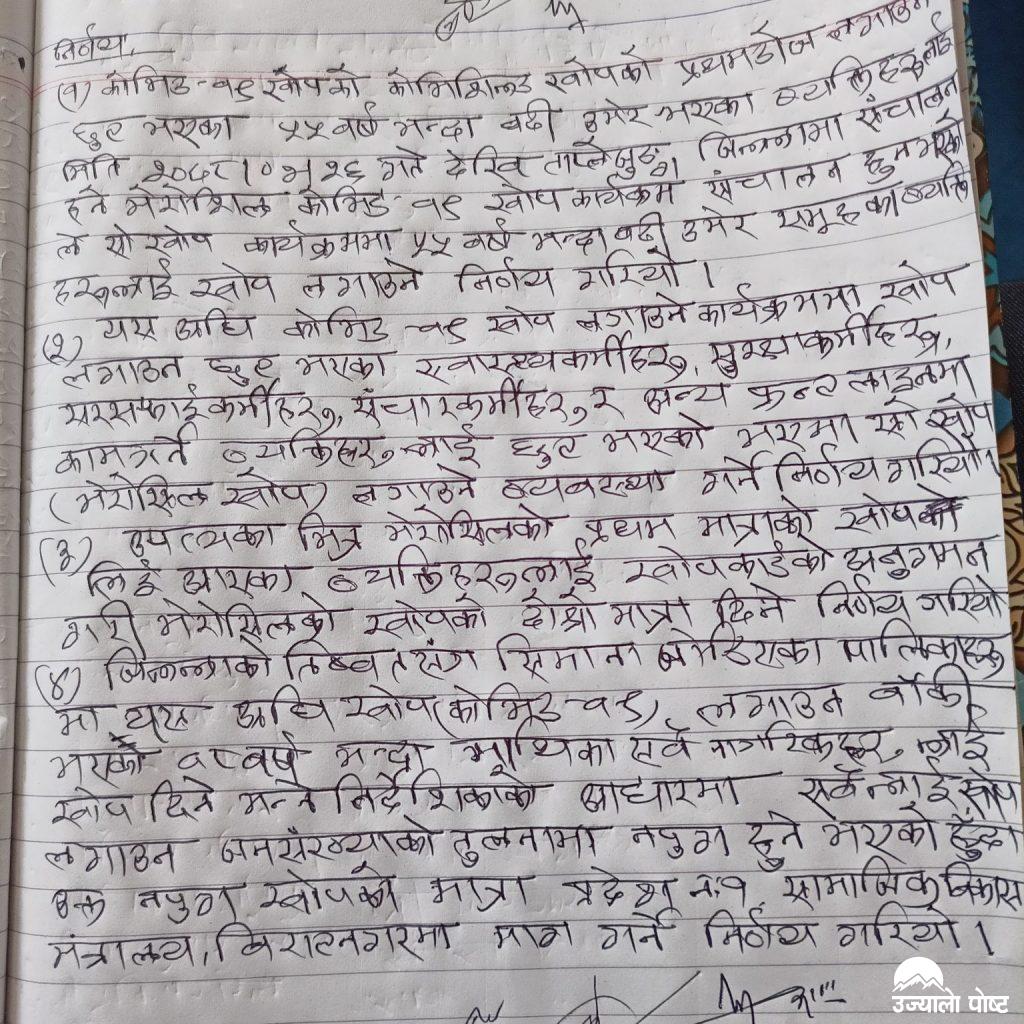 निर्णय,
(१) कोभिड-१९ खोपको कोभिशिल्ड खोपको प्रथमडोज लगाउन
छुट भएका ५५ वर्ष भन्दा बढी उमेर भएका व्यक्तिहरुलाई
मिति २०७८।०३।२६ गते देखि ताप्लेजुङ्ग जिल्लामा संचालन
हुने भेरोशिल कोभिड-१९ खोप कार्यक्रम संचालन हुन गएको
ले सो खोप कार्यक्रममा ५५ वर्ष भन्दा बढी उमेर समूहका व्यक्ति
हरुलाई खोप लगाउने निर्णय गरियो।
(२) यस अघि कोभिड-१९ खोप लगाउने कार्यक्रममा खोप
लगाउन छुट भएका स्वास्थ्यकर्मीहरु, सुरक्षाकर्मीहरु,
सरसफाईकर्मीहरु, संचारकर्मीहरु, र अन्य फ्रन्ट लाइनमा
कामगर्ने व्यक्तिहरुलाई छुट भएको भएमा सो खोप
(भेरोशिल खोप) लगाउने व्यवस्था गर्ने निर्णय गरियो।
(३) उपत्यका भित्र भेरोसिलको प्रथम मात्राको खोप
लिई आएका व्यक्तिहरुलाई खोपकार्डको अनुगमन
गरी भेरोसिलको खोपको दोश्रो मात्रा दिने निर्णय गरियो
(४) जिल्लाको तिब्बतसंग सिमाना जोडिएका पालिकाहरु
मा यस अघि खोप (कोभिड-१९) लगाउन बाँकी
भएको १८ वर्ष भन्दा माथिका सबै नागरिकहरु लाई
खोप दिने भन्ने निर्देशिकाको आधारमा सबैलाई खोप
लगाउन जनसंख्याको तुलनामा नपुग हुने भएको हुँदा
उक्त नपुग खोपको मात्रा प्रदेश नं १, सामाजिक विकास
मंत्रालय, विराटनगरमा माग गर्ने निर्णय गरियो।
उज्यालो पोष्ट